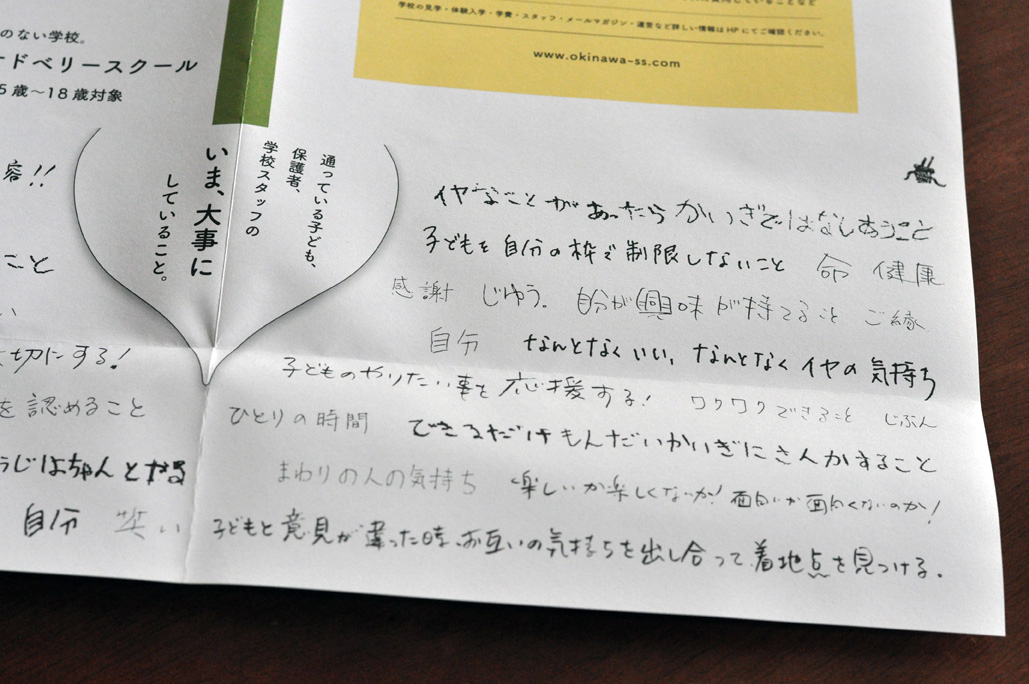 学校の見学・体験入学・学費・スタッフ・メールマガジン・運営など詳しい情報はHPにてご確認ください。
www.okinawa-ss.com
のない学校。
ドベリースクール
5歳〜18歳対象
通っている子ども、
保護者、
学校スタッフの
いま、大事に
していること。
容!!
こと
い
切にする!
を認めること
うじはちゃんとやる
自分 笑い
イヤなことがあったらかいぎではなしあうこと
子どもを自分の枠で制限しないこと 命 健康
感謝 じゆう。 自分が興味が持てること ご縁
自分 なんとなくいい, なんとなくイヤの気持ち
子どものやりたい事を応援する! ワクワクできること じぶん
ひとりの時間 できるだけもんだいかいぎにさんかすること
まわりの人の気持ち 楽しいか楽しくないか! 面白いか面白くないのか!
子どもと意見が違った時、お互いの気持ちを出し合って着地点を見つける。